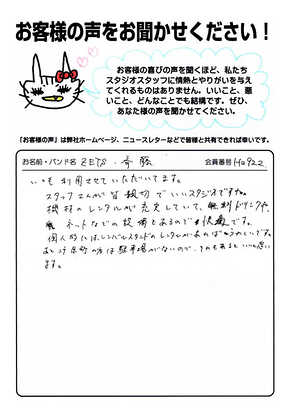 お客様の声をお聞かせください！
お客様の喜びの声を聞くほど、私たち
スタジオスタッフに情熱とやりがいを与え
てくれるものはありません。いいこと、悪
いこと、どんなことでも結構です。ぜひ、
あなた様の声を聞かせてください。
「お客様の声」は弊社ホームページ、ニュースレターなどで皆様と共有できれば幸いです。
お名前・バンド名 ZETS 斉藤 会員番号
いつも利用させていただいてます。
スタッフさんが皆親切でいいスタジオですね。
機材のレンタルが充実していて、無料ドリンクや、
ネットなどの設備もあるので快適です。
個人的にはシンバルスタンドのレンタルがあればうれしいです。
あと は駐車場がないので、そのもあるといいと思い
ます。